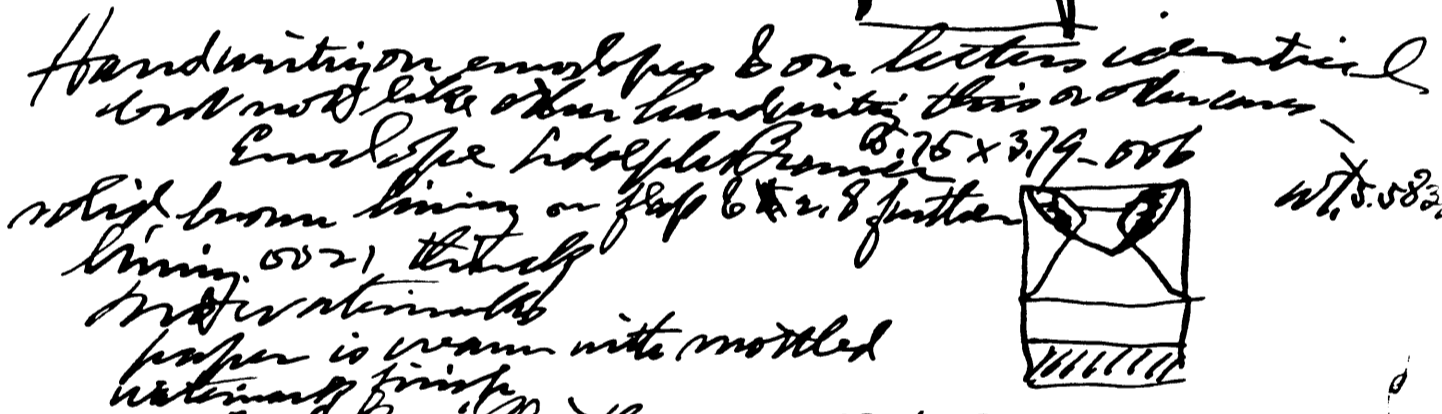 Handwriting on envelopes & on letters identical
but not like other handwriting this or other cases
Envelope Adolph 5.75 x 3.79 - .006
wt. 5.583
solid brown lining on flap & 2.8 further
lining .0021 thick
no watermarks
paper is cream with mottled
watermark finish